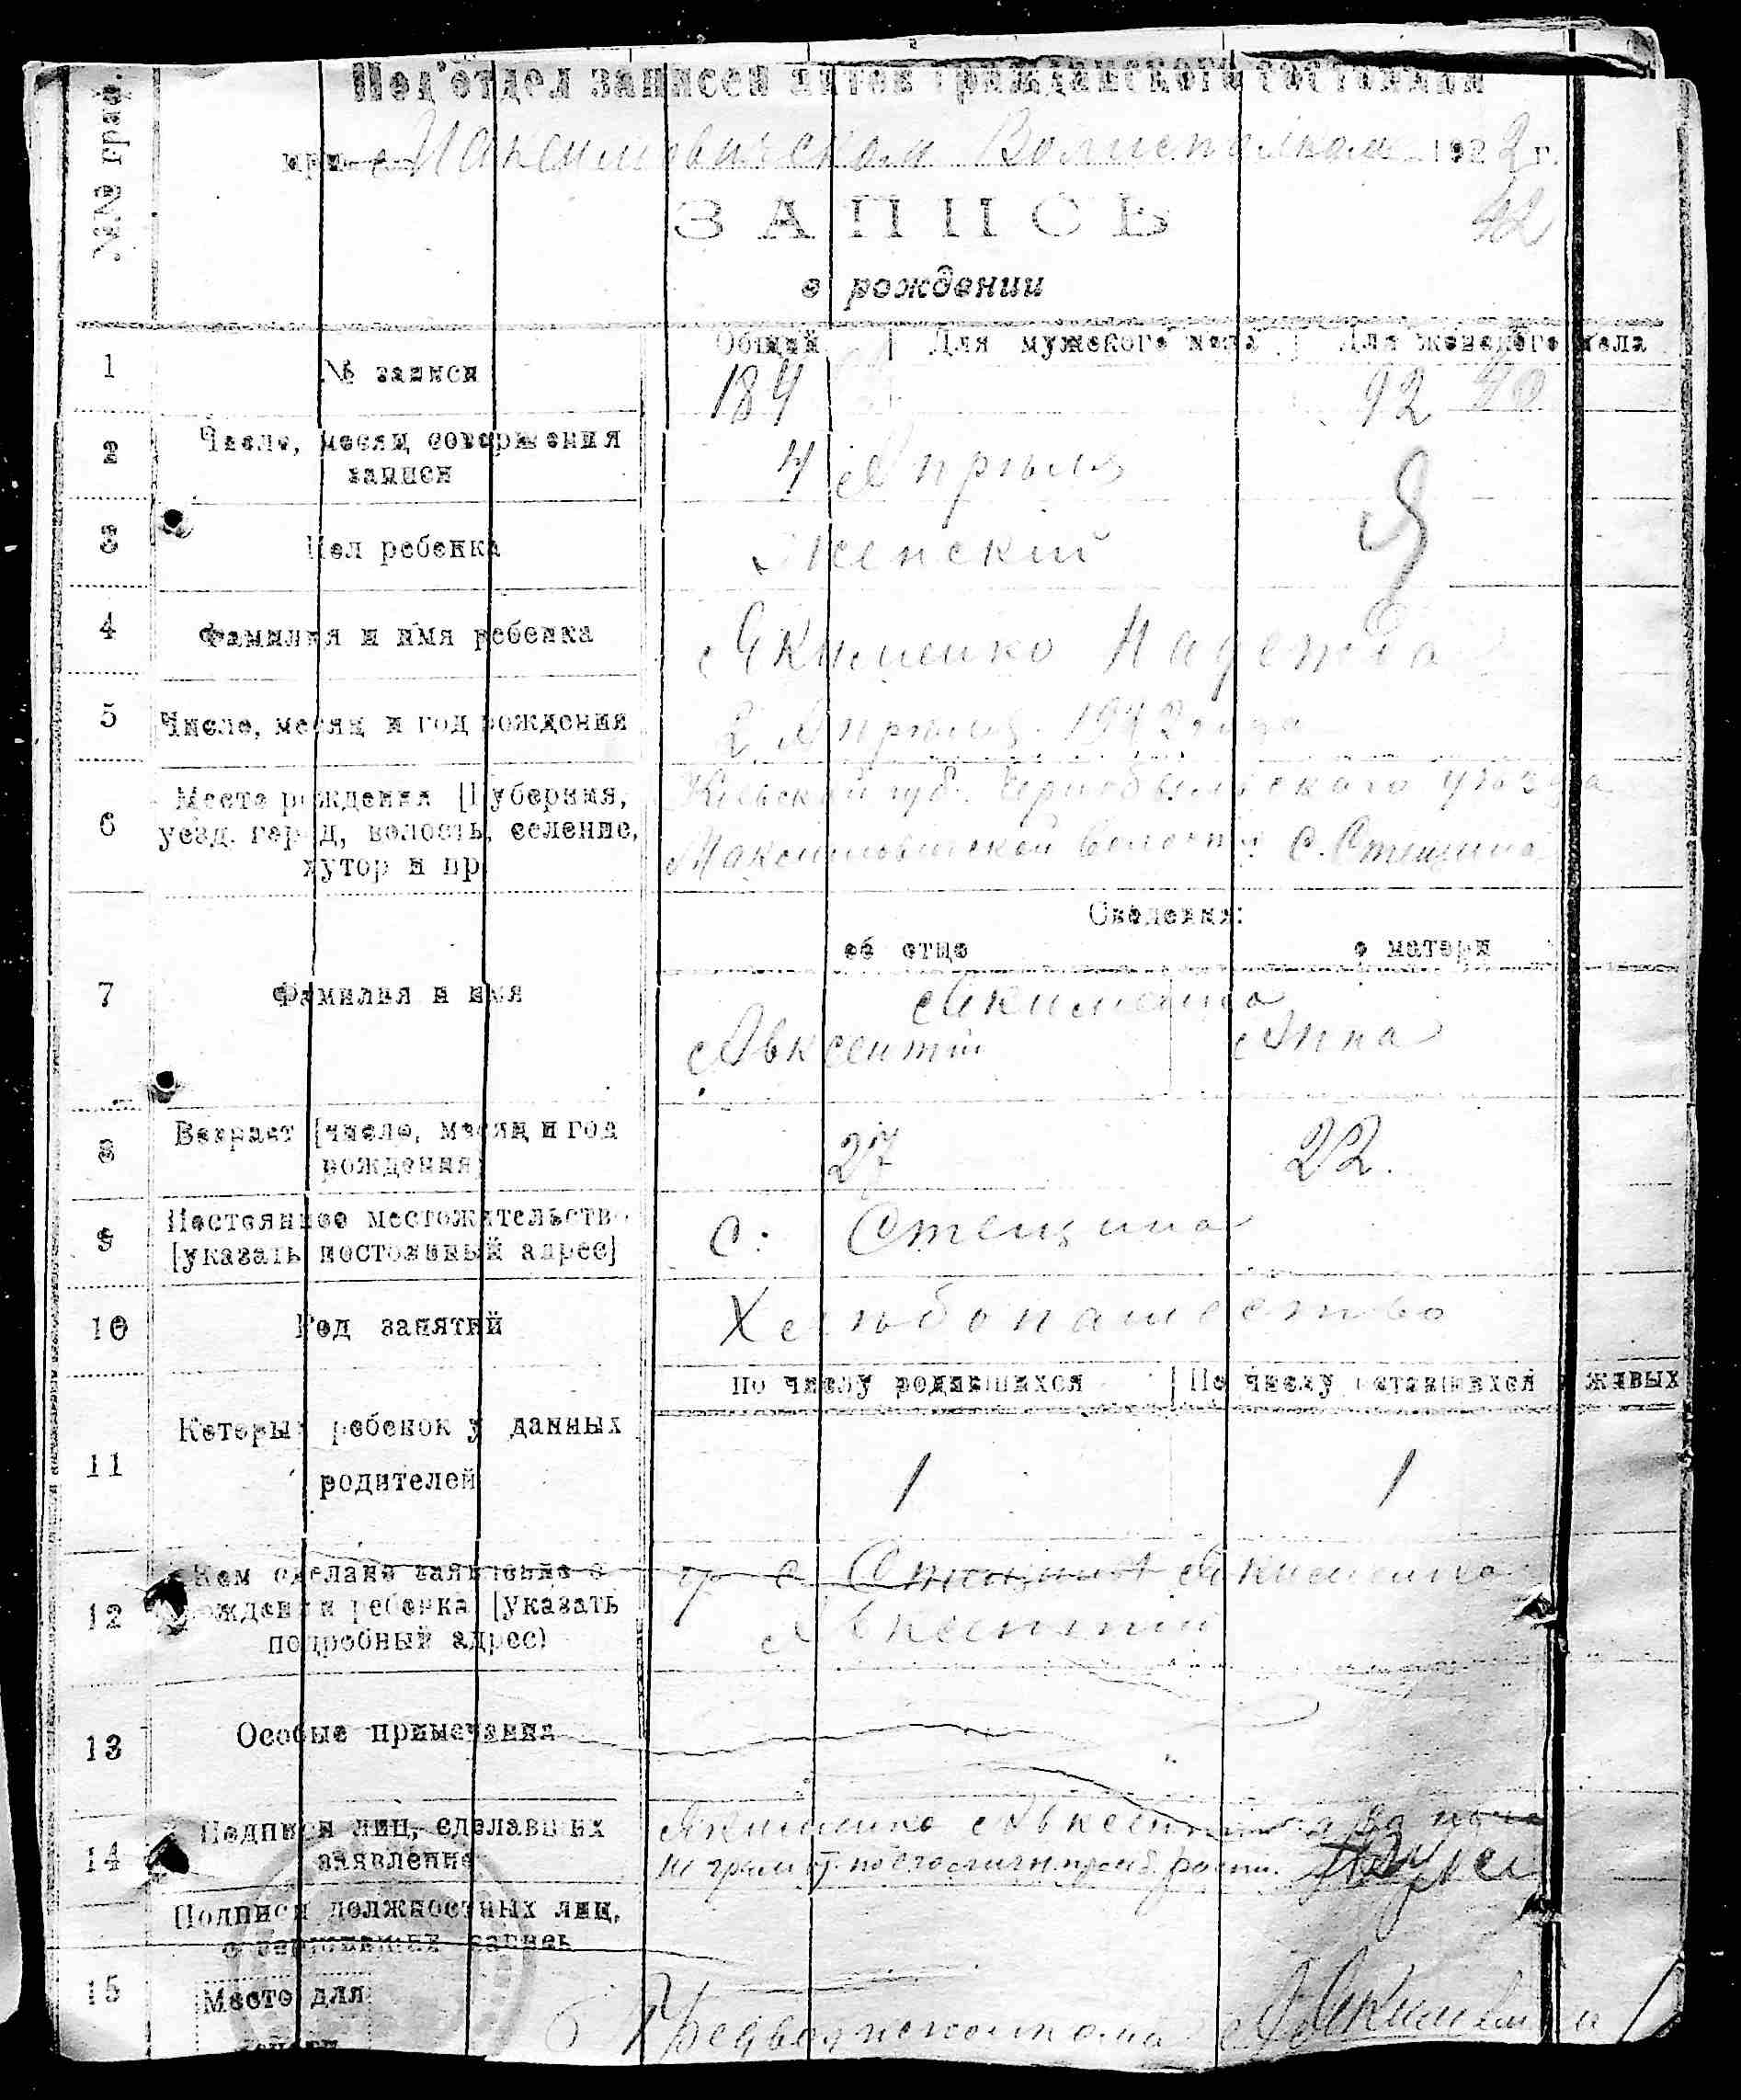 №№ граф.
Под'отдел записей актов гражданского состояния
при Максимовическом Волисполкоме 1922 г.
ЗАПИСЬ
42
о рождении
Общий Для мужского пола Для женского пола
1 № записи 184 92
2 Число, месяц совершения
записи
4 Апрѣля
3 Пол ребенка Женский
4 Фамилия и имя ребенка Якименко Надежда
5 Число, месяц и год рождения 2 Апрѣля 1922 года
6 Место рождения [Губерния,
уезд, город, волость, селение,
хутор и пр.
Кіевской губ. Чернобыльского уѣзда
Максимовичской волости с. Стещина
Сведения:
об отце о матери
7 Фамилия и имя
Якименко
Авксентий Анна
8 Возраст [число, месяц и год
рождения]
27 22.
9 Постоянное местожительство
[указать постоянный адрес]
с. Стещина
10 Род занятий Хлѣбопашество
По числу родившихся По числу оставшихся живых
11 Который ребенок у данных
родителей
1 1
12 Кем сделано заявление о
рождении ребенка [указать
подробный адрес)
гр. с. Стещина Якименко
Авксентий
13 Особые примечания
14 Подписи лиц, сделавших
заявление
Якименко Авксентий а за него
неграмот. по его личн. просьб. распи.
Подписи должностных лиц,
совершивших запись
15 Место для
печати
Предволисполкома Якименко